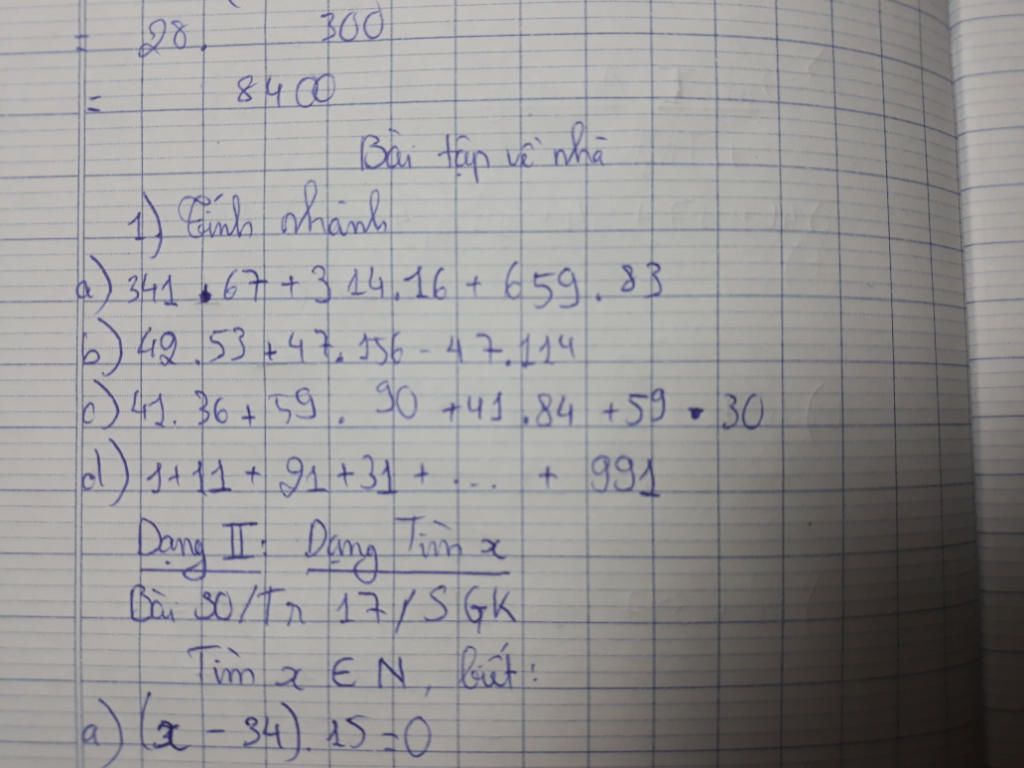 = 28. 300
= 8400
Bài tập về nhà
1) Tính nhanh
a) 341 . 67 + 314.16 + 659 . 83
b) 42 .53 + 47. 156 - 47.114
c) 41. 36 + 59 . 90 + 41 .84 + 59 . 30
d) 1 + 11 + 21 + 31 + .... + 991
Dạng II: Dạng Tìm x
Bài 30/Tr 17/SGK
Tìm x ∈ N, biết:
a) (x - 34). 15 = 0